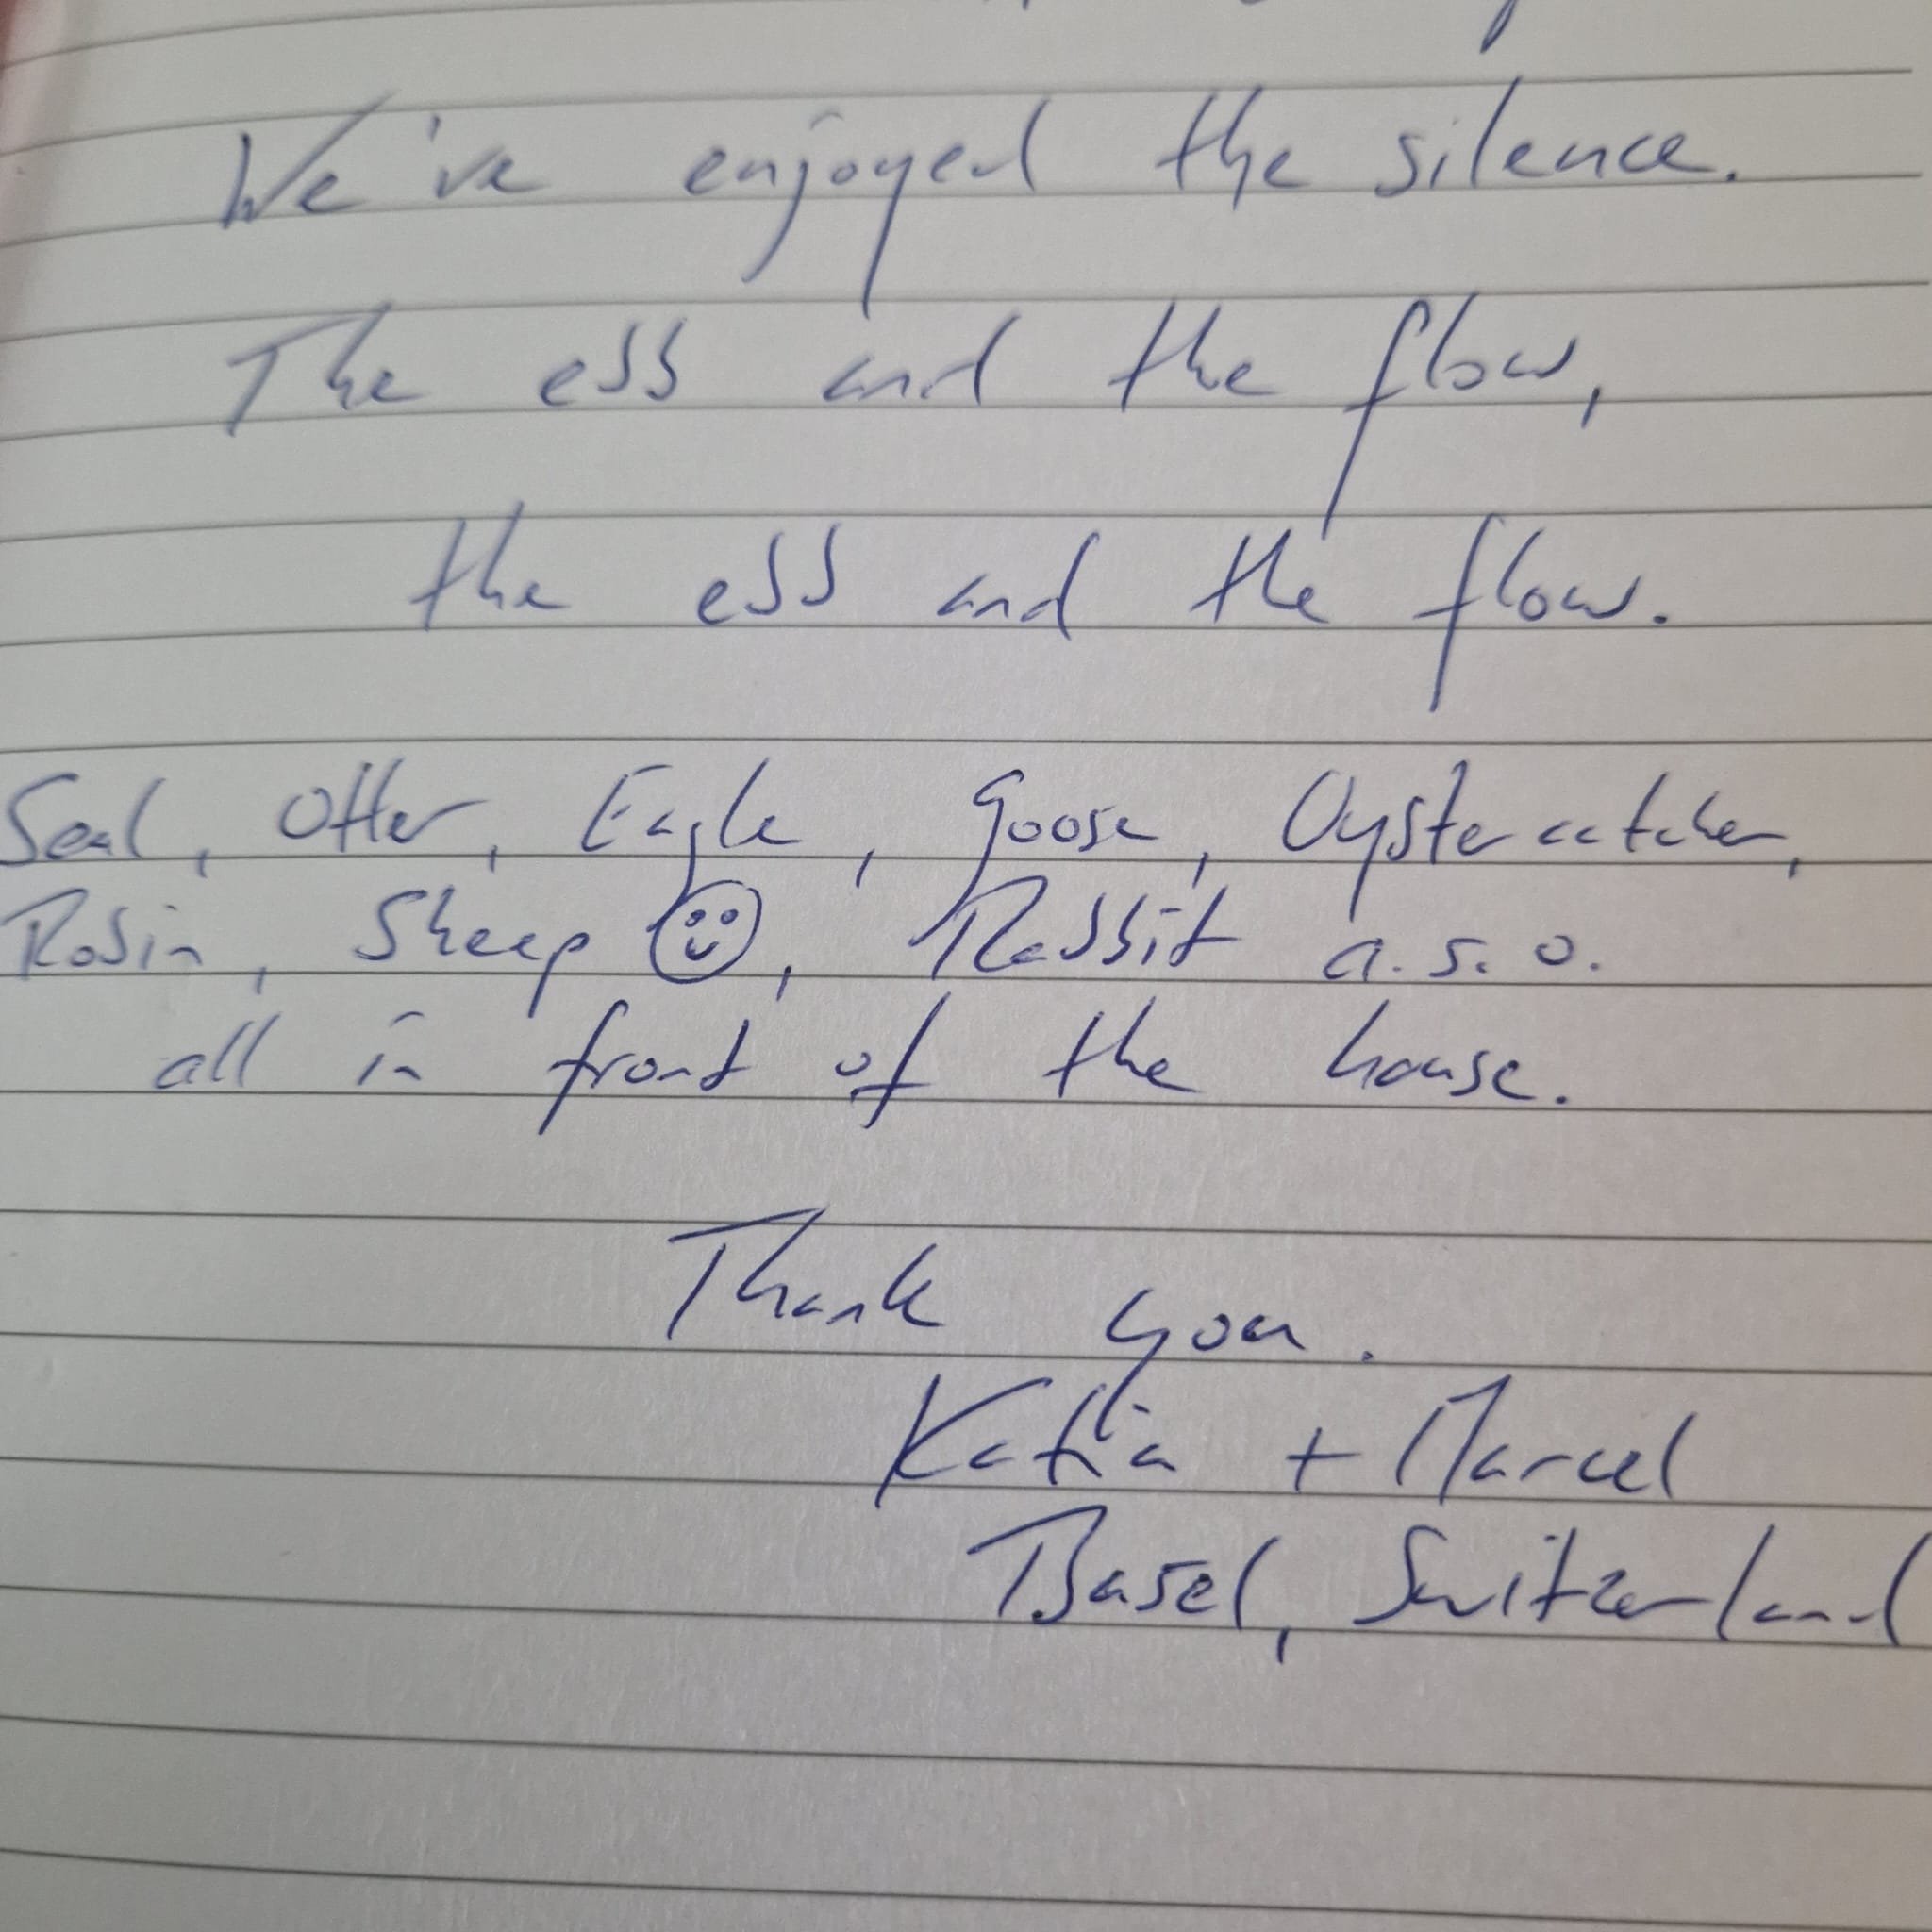 We've enjoyed the silence.
The ebb and the flow,
the ebb and the flow.
Seal, Otter, Eagle, Goose, Oystercatcher,
Robin, Sheep ☺, Rabbit a.s.o.
all in front of the house.
Thank you.
Katja + Marcel
Basel, Switzerland